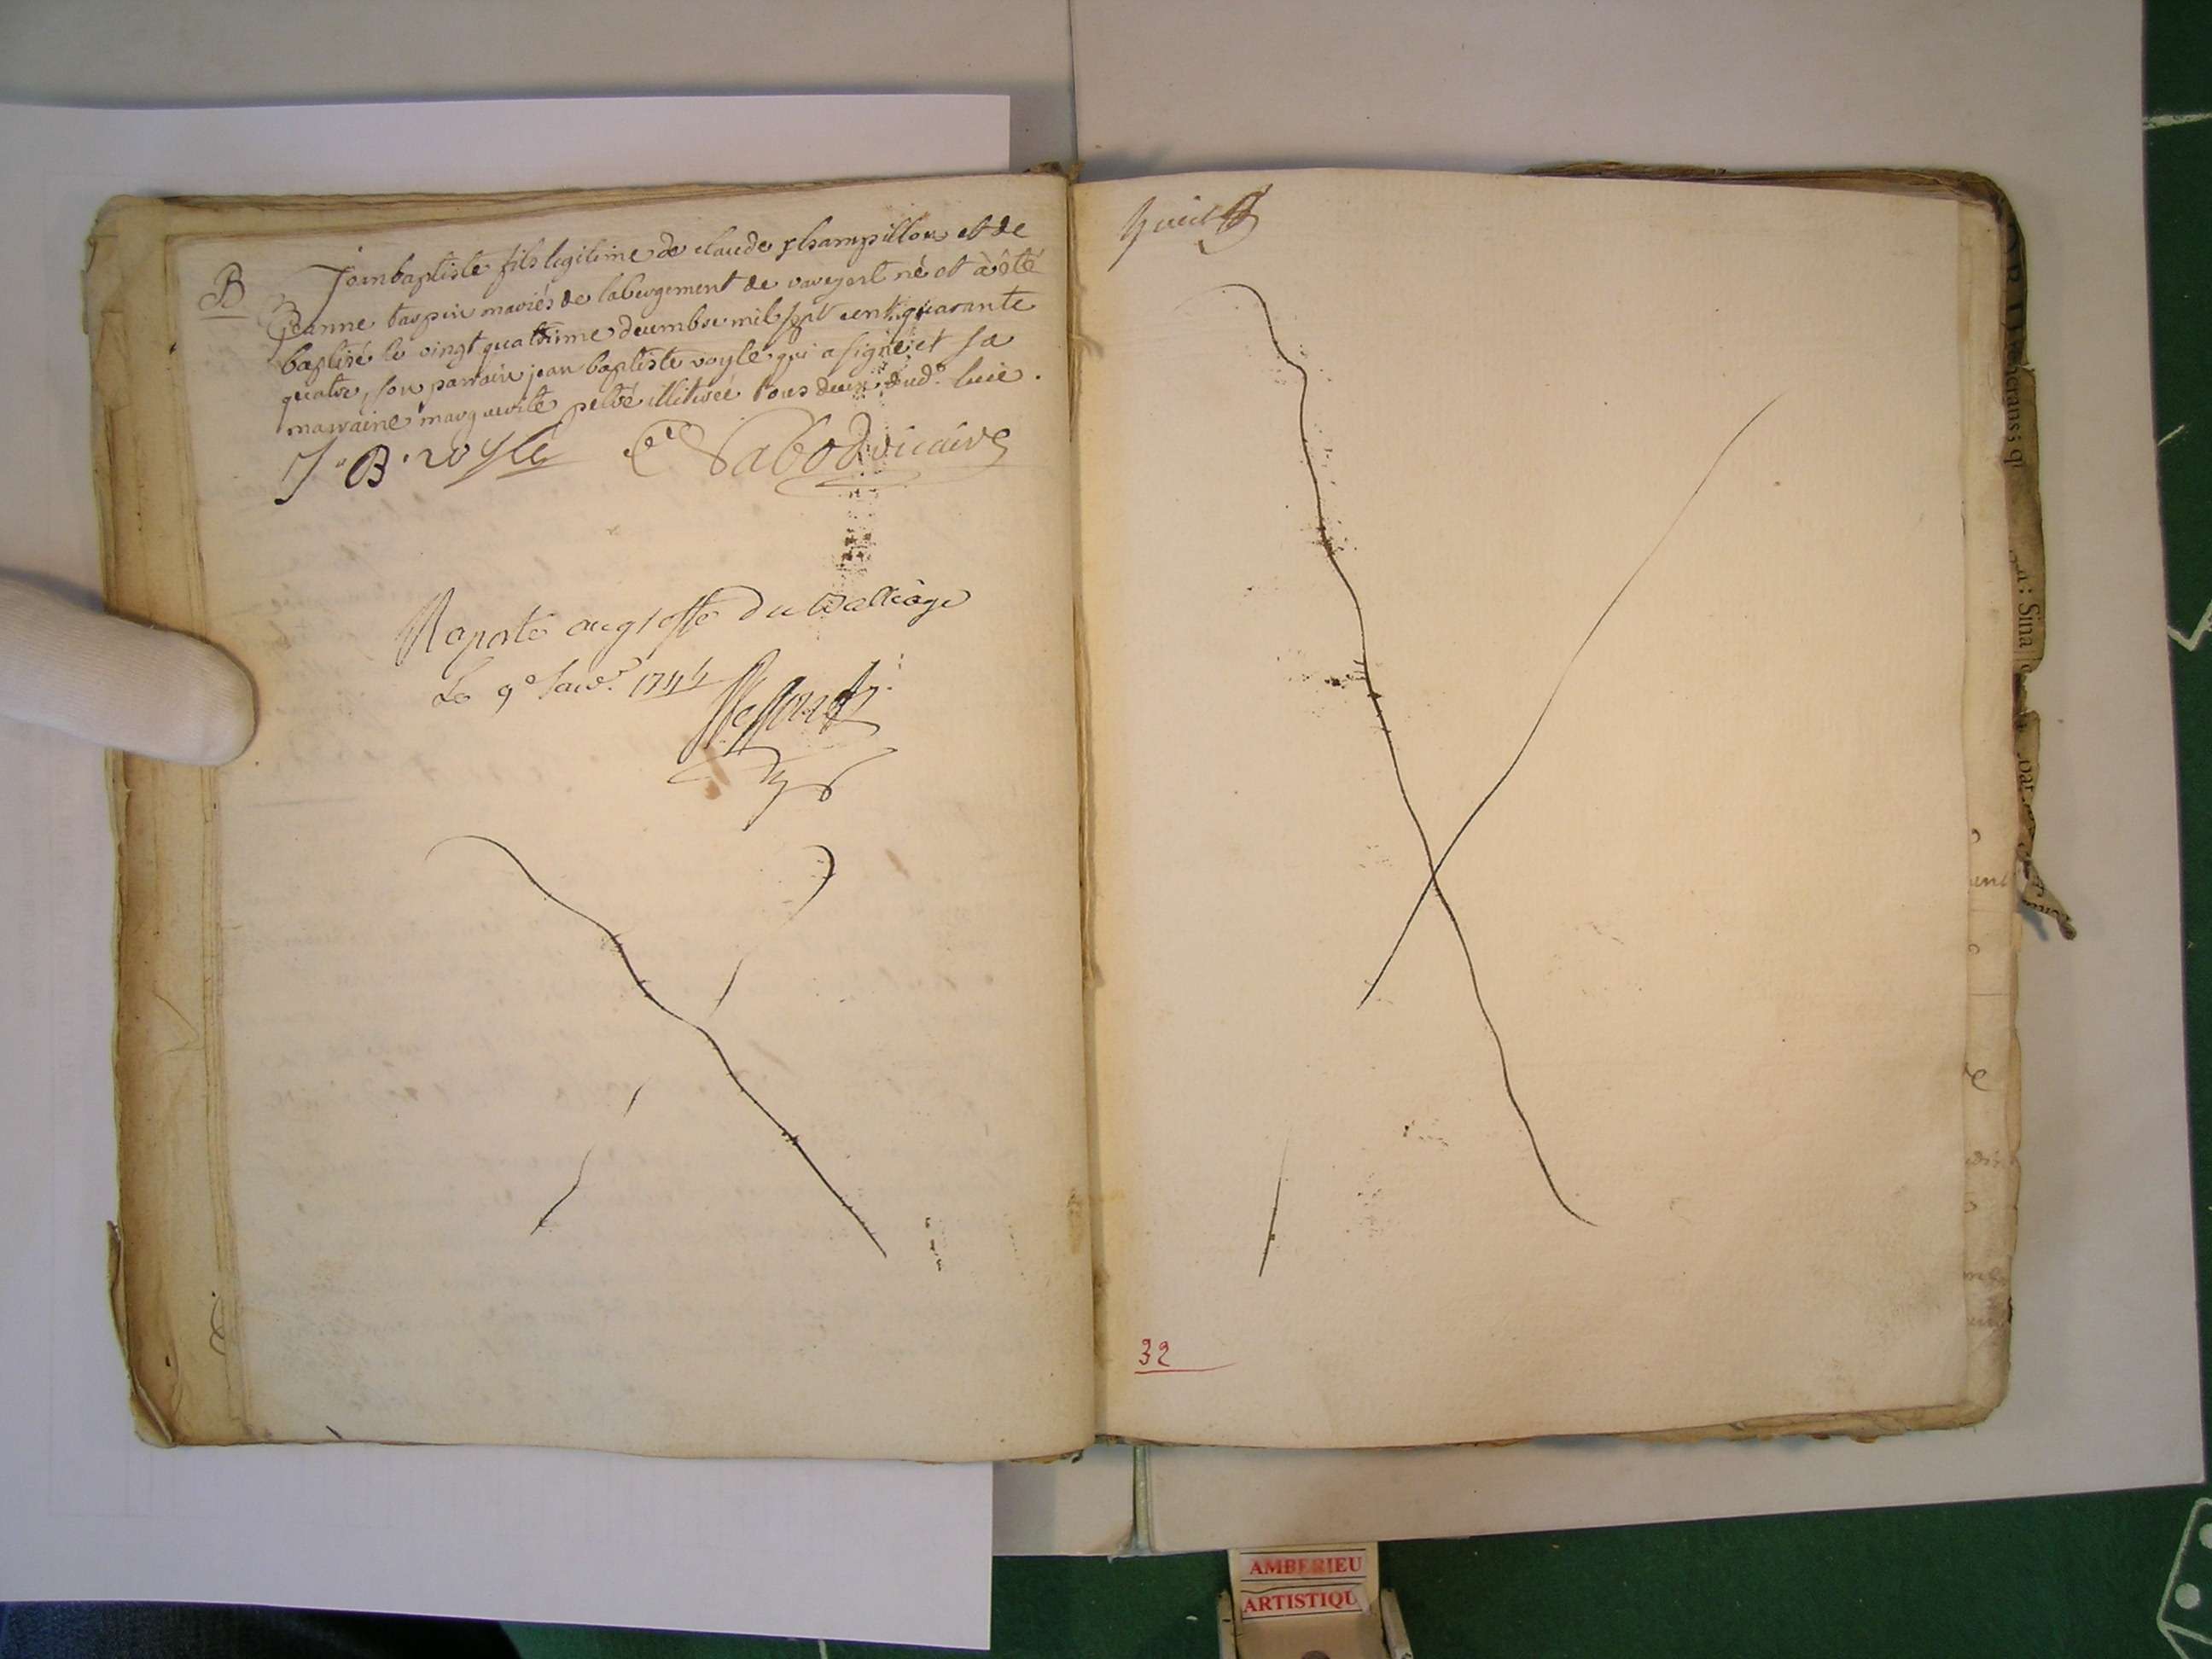 B
Jeanbaptiste fils legitime de claude champillon et de
Jeanne taspin mariés de labergement de varey est né et à été
baptisé le vingt quatrieme decembre mil sept cent quarante
quatre, son parrain jean baptiste royle qui a signé et sa
marraine marguerite illitirée tous deux dud.
J. B. royle Vicaire
Raporté au greffe du Balliage
Le 9e Janvr. 1744
huit
32
AMBERIEU
ARTISTIQU
: Sina
par